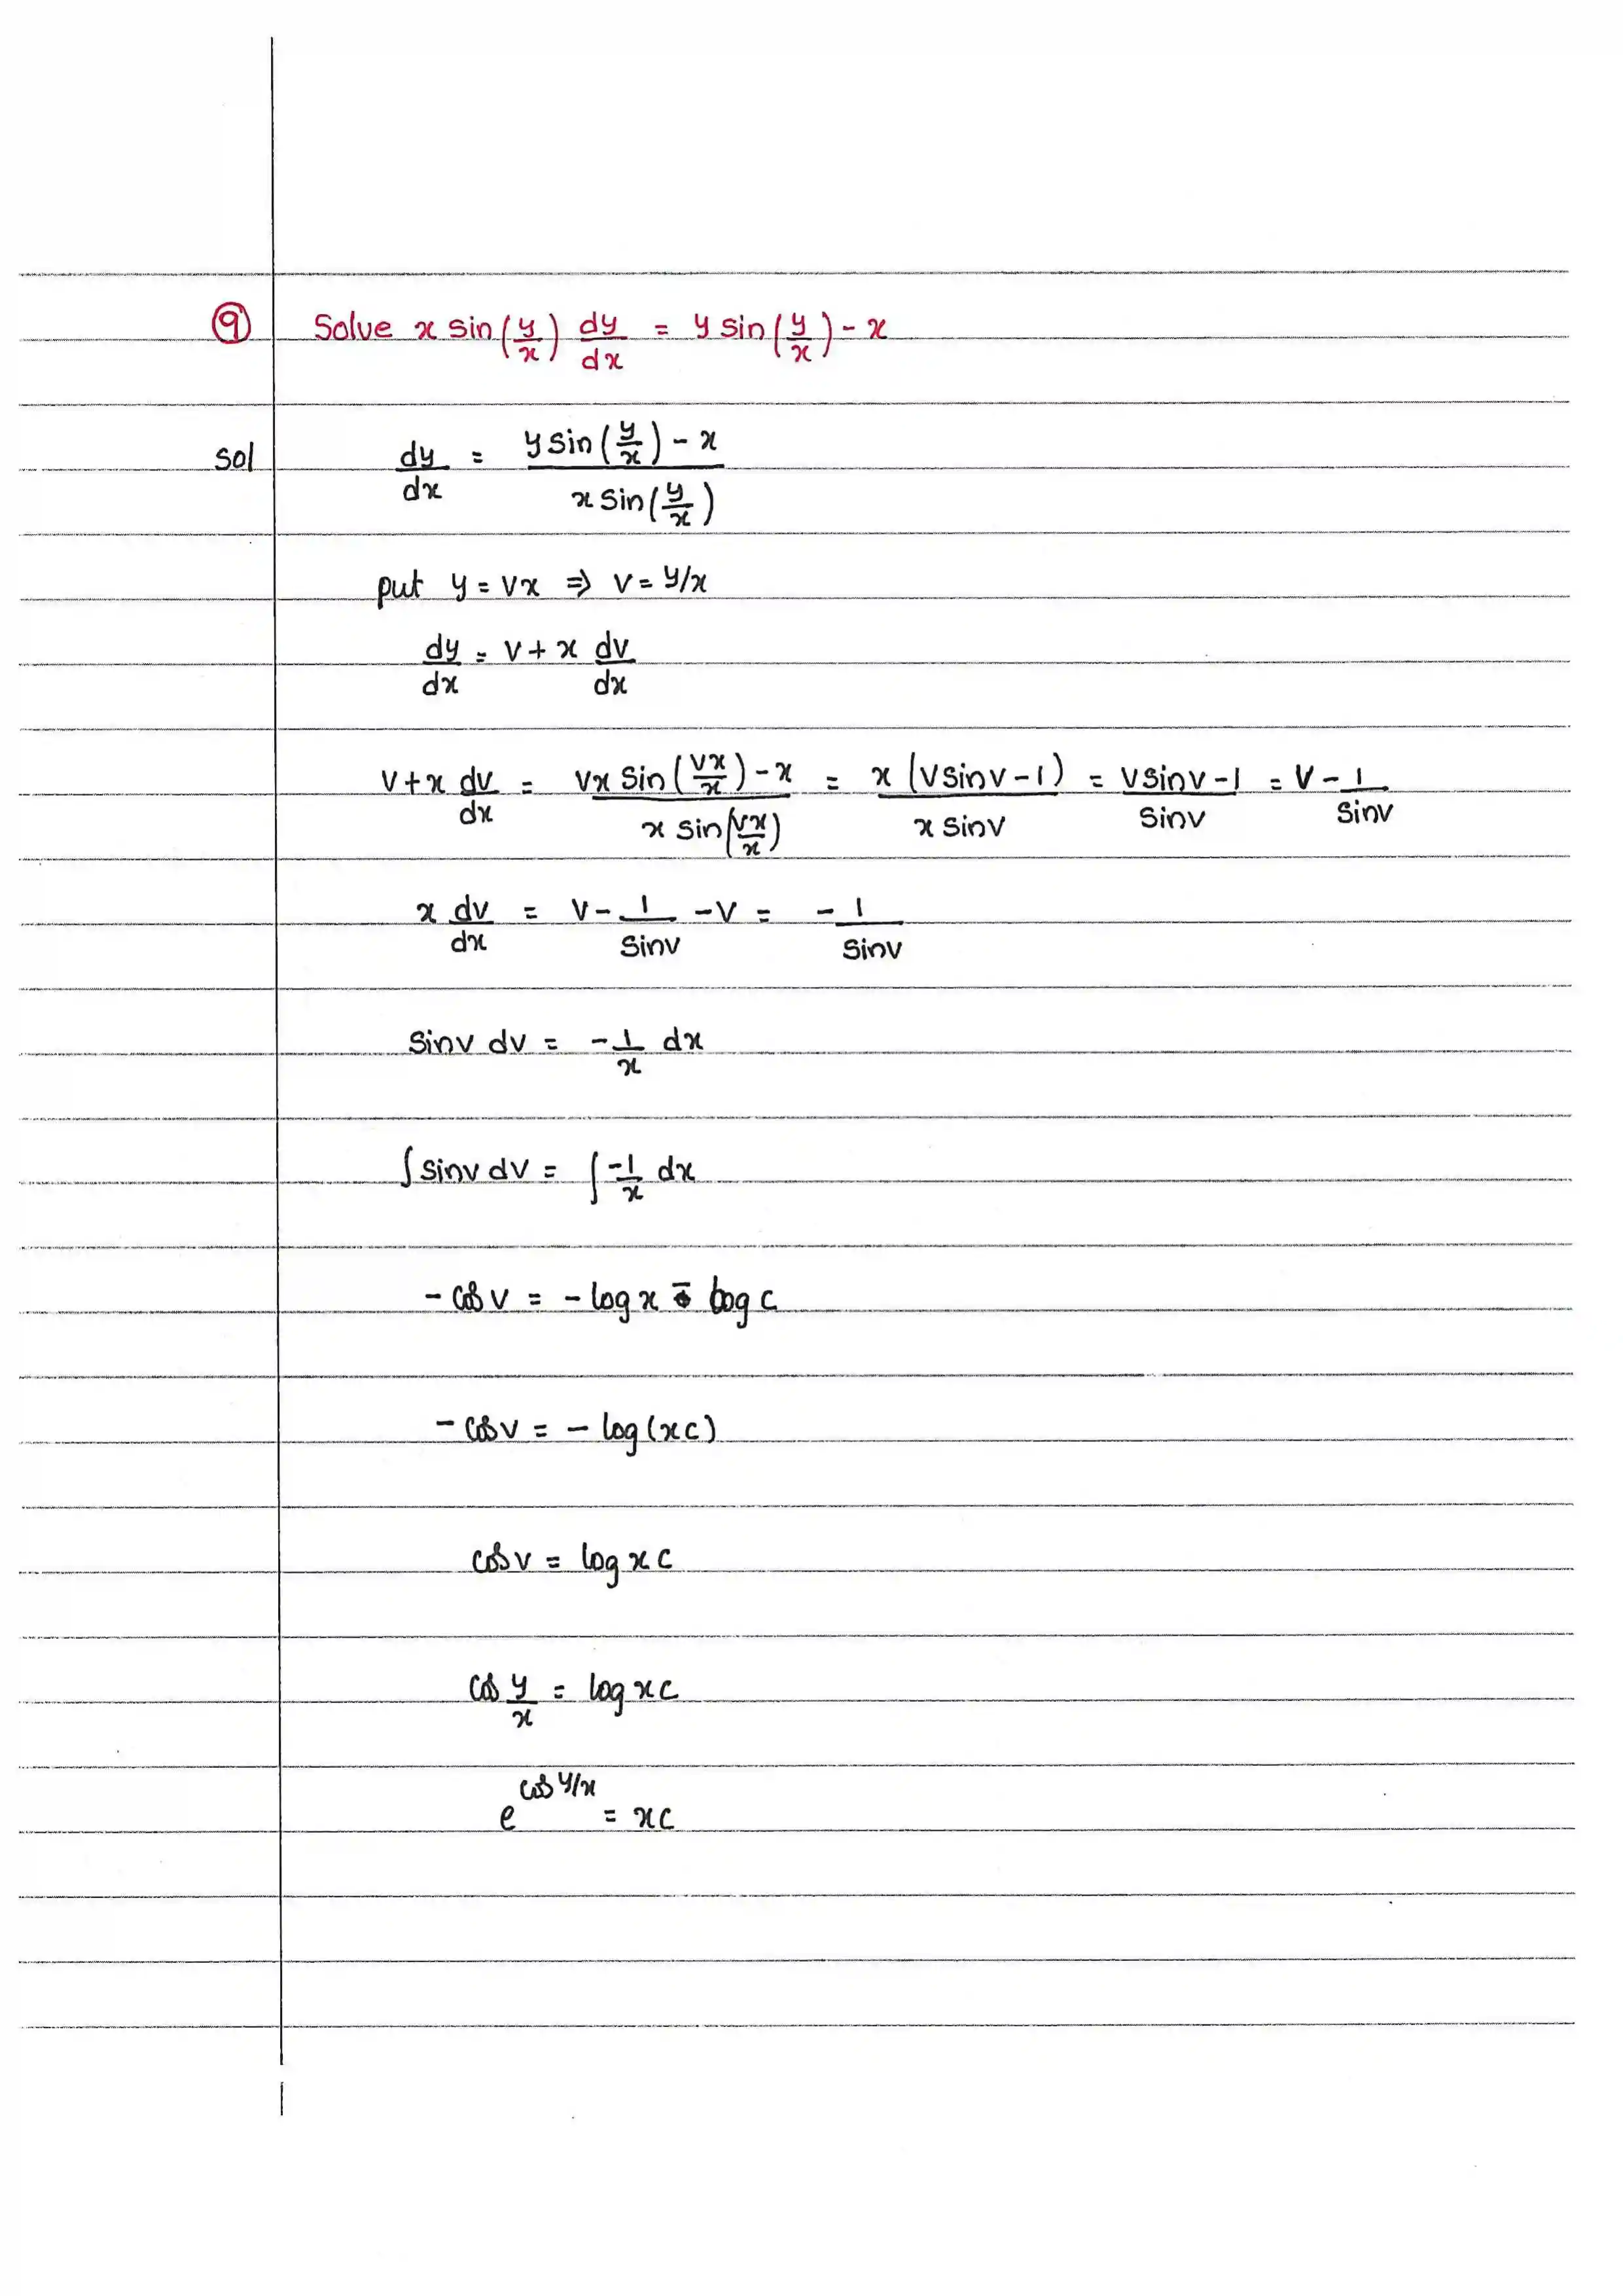 ⑨ Solve x sin(y/x) dy/dx = y sin(y/x) - x
Sol dy/dx = (y sin(y/x) - x) / (x sin(y/x))
put y = vx ⇒ v = y/x
dy/dx = v + x dv/dx
v + x dv/dx = (vx sin(vx/x) - x) / (x sin(vx/x)) = x(v sinv - 1) / (x sinv) = (v sinv - 1) / sinv = v - 1/sinv
x dv/dx = v - 1/sinv - v = - 1/sinv
sinv dv = - 1/x dx
∫ sinv dv = ∫ -1/x dx
- cos v = - log x - log c
- cos v = - log(xc)
cos v = log xc
cos y/x = log xc
e^(cos y/x) = xc